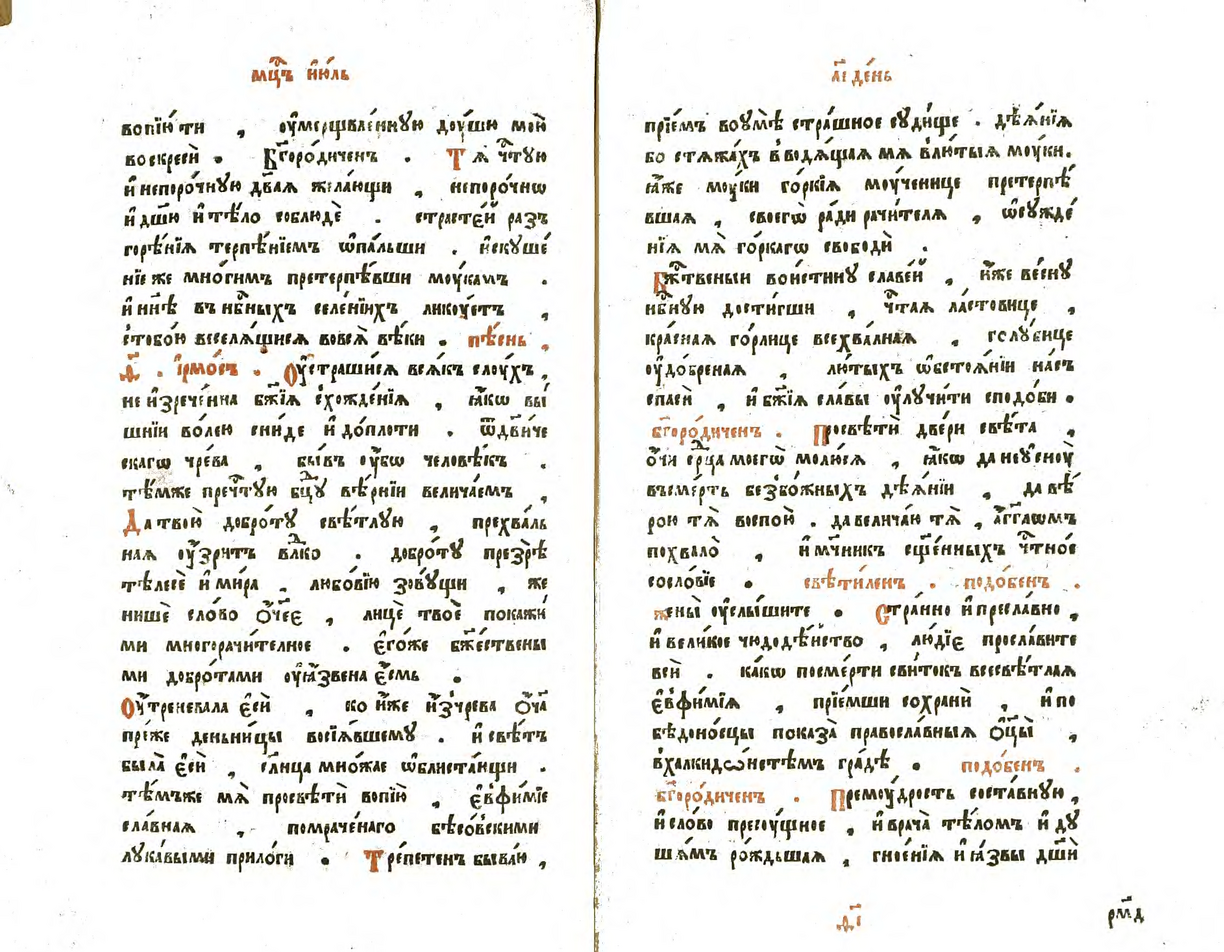 мц҇ъ ию́ль
вопїю́ ти , ᲂу҆мерщвле́нную дᲂу́шю мою̀
воскресѝ . Бг҃оро́диченъ . Тѧ̀ чⷭ҇тую
и҆ непоро́чную дв҃аѧ жела́ющи , непоро́чнѡ
и҆ дш҃ю и҆ тѣ́ло соблюдѐ . страсте́й раз
горѣ́нїѧ терпѣ́нїемъ ѡ҆па́льши . и҆скуше́
нїе же мно́гимъ претерпѣ́вши мᲂу́камъ .
и҆ нн҃ѣ въ нб҇ныхъ селе́нїихъ ликꙋ́етъ ,
с тобо́ю веселѧ́щисѧ во всѧ̀ вѣ́ки . пѣ́снь ,
д҃ . і҆рмо́съ . Оу҆страши́сѧ всѧ́къ слꙋ́хъ ,
неи҆зрече́нна бж҃їѧ схожде́нїѧ , ꙗ҆́кѡ вы́
шнїи во́лею сни́де и҆ до пло́ти . ѿ дв҃иче
скагѡ чре́ва , бы́въ ᲂу҆́бѡ человѣ́къ .
тѣ́мже пречⷭ҇тую бцⷣу вѣ́рнїи велича́емъ ,
Да твою̀ добро́тꙋ свѣ́тлꙋю , прехва́ль
наѧ ᲂу҆́зритъ влⷣко . добро́тꙋ презрѣ̀
тѣлесѐ и҆ ми́ра , любо́вїю зовꙋ́щи , же
нишѐ сло́во ѻ҆́ч҃ее , лицѐ твоѐ покажи́
ми многорачи́телное . є҆го́же бж҇е́ствены
ми добро́тами ᲂу҆ꙗ́звена є҆́смь .
Оу҆́треневала є҆сѝ , ко и҆́же и҆з̾ чре́ва ѻ҆ч҃а̀
пре́же деньни́цы восїѧ́вшемꙋ . и҆ свѣ́тъ
была̀ є҆сѝ , сл҃нца мно́жае ѡ҆блиста́ющи .
тѣ́мъже мѧ̀ просвѣтѝ вопїю̀ , є҆ѵфи́мїе
сла́внаѧ , помраче́наго бѣсо́вскими
лꙋка́выми прило́ги . Тре́петенъ быва́ю ,
а҃і де́нь
прїе́мъ во ᲂу҆мѣ̀ стра́шное сꙋди́ще . дѣѧ́нїѧ
бо стѧжа́хъ вводѧ́щаѧ мѧ̀ в лю́тыѧ мᲂу́ки .
ꙗ҆́же мᲂу́ки го́ркїѧ мᲂу́ченице претерпѣ́
вшаѧ , своегѡ̀ ра́ди рачи́телѧ , ѡ҆сꙋжде́
нїѧ мѧ̀ го́ркагѡ свободѝ .
Бж҇твеныи вои́стинꙋ славе́й , и҆́же веснꙋ̀
нб҇ную дости́гши , чⷭ҇таѧ ла́стовице ,
кра́снаѧ го́рлице всехва́лнаѧ , голꙋ́бице
ᲂу҆до́бренаѧ , лю́тыхъ ѡ҆бстоѧ́нїи на́съ
спасѝ , и҆ бж҃їѧ сла́вы ᲂу҆лꙋчи́ти сподо́би .
бг҃оро́диченъ . Просвѣтѝ две́ри свѣ́та ,
ѻ҆́чи срⷣца моегѡ̀ молю́сѧ , ꙗ҆́кѡ да не ᲂу҆снꙋ̀
въ сме́рть безбо́жныхъ дѣѧ́нїи , да вѣ́
рою тѧ̀ воспою̀ . да велича́ю тѧ̀ , а҆́гг҃лѡмъ
похвало̀ , и҆ мч҃никъ сщ҃е́нныхъ чⷭ҇тно́е
сосло́вїе . свѣти́ленъ . подо́бенъ .
жены̀ ᲂу҆слы́шите . Стра́нно и҆ пресла́вно ,
и҆ вели́кое чюдодѣ́йство , лю́дїе просла́вите
всѝ . ка́кѡ по сме́рти сви́токъ всесвѣ́тлаѧ
є҆ѵфи́мїѧ , прїе́мши сохранѝ , и҆ по
бѣдоно́сцы показа̀ правосла́вныѧ ѻ҆ц҃ы̀ ,
в халкидѡ́нстѣмъ гра́дѣ . подо́бенъ .
бг҃оро́диченъ . Премᲂу́дрость соста́внꙋю ,
и҆ сло́во пресꙋ́щное , и҆ врача̀ тѣло́мъ и҆ дꙋ
ша́мъ ро́ждьшаѧ , гное́нїѧ и҆ ꙗ҆́звы дш҃ѝ
д҃і
рм҃д